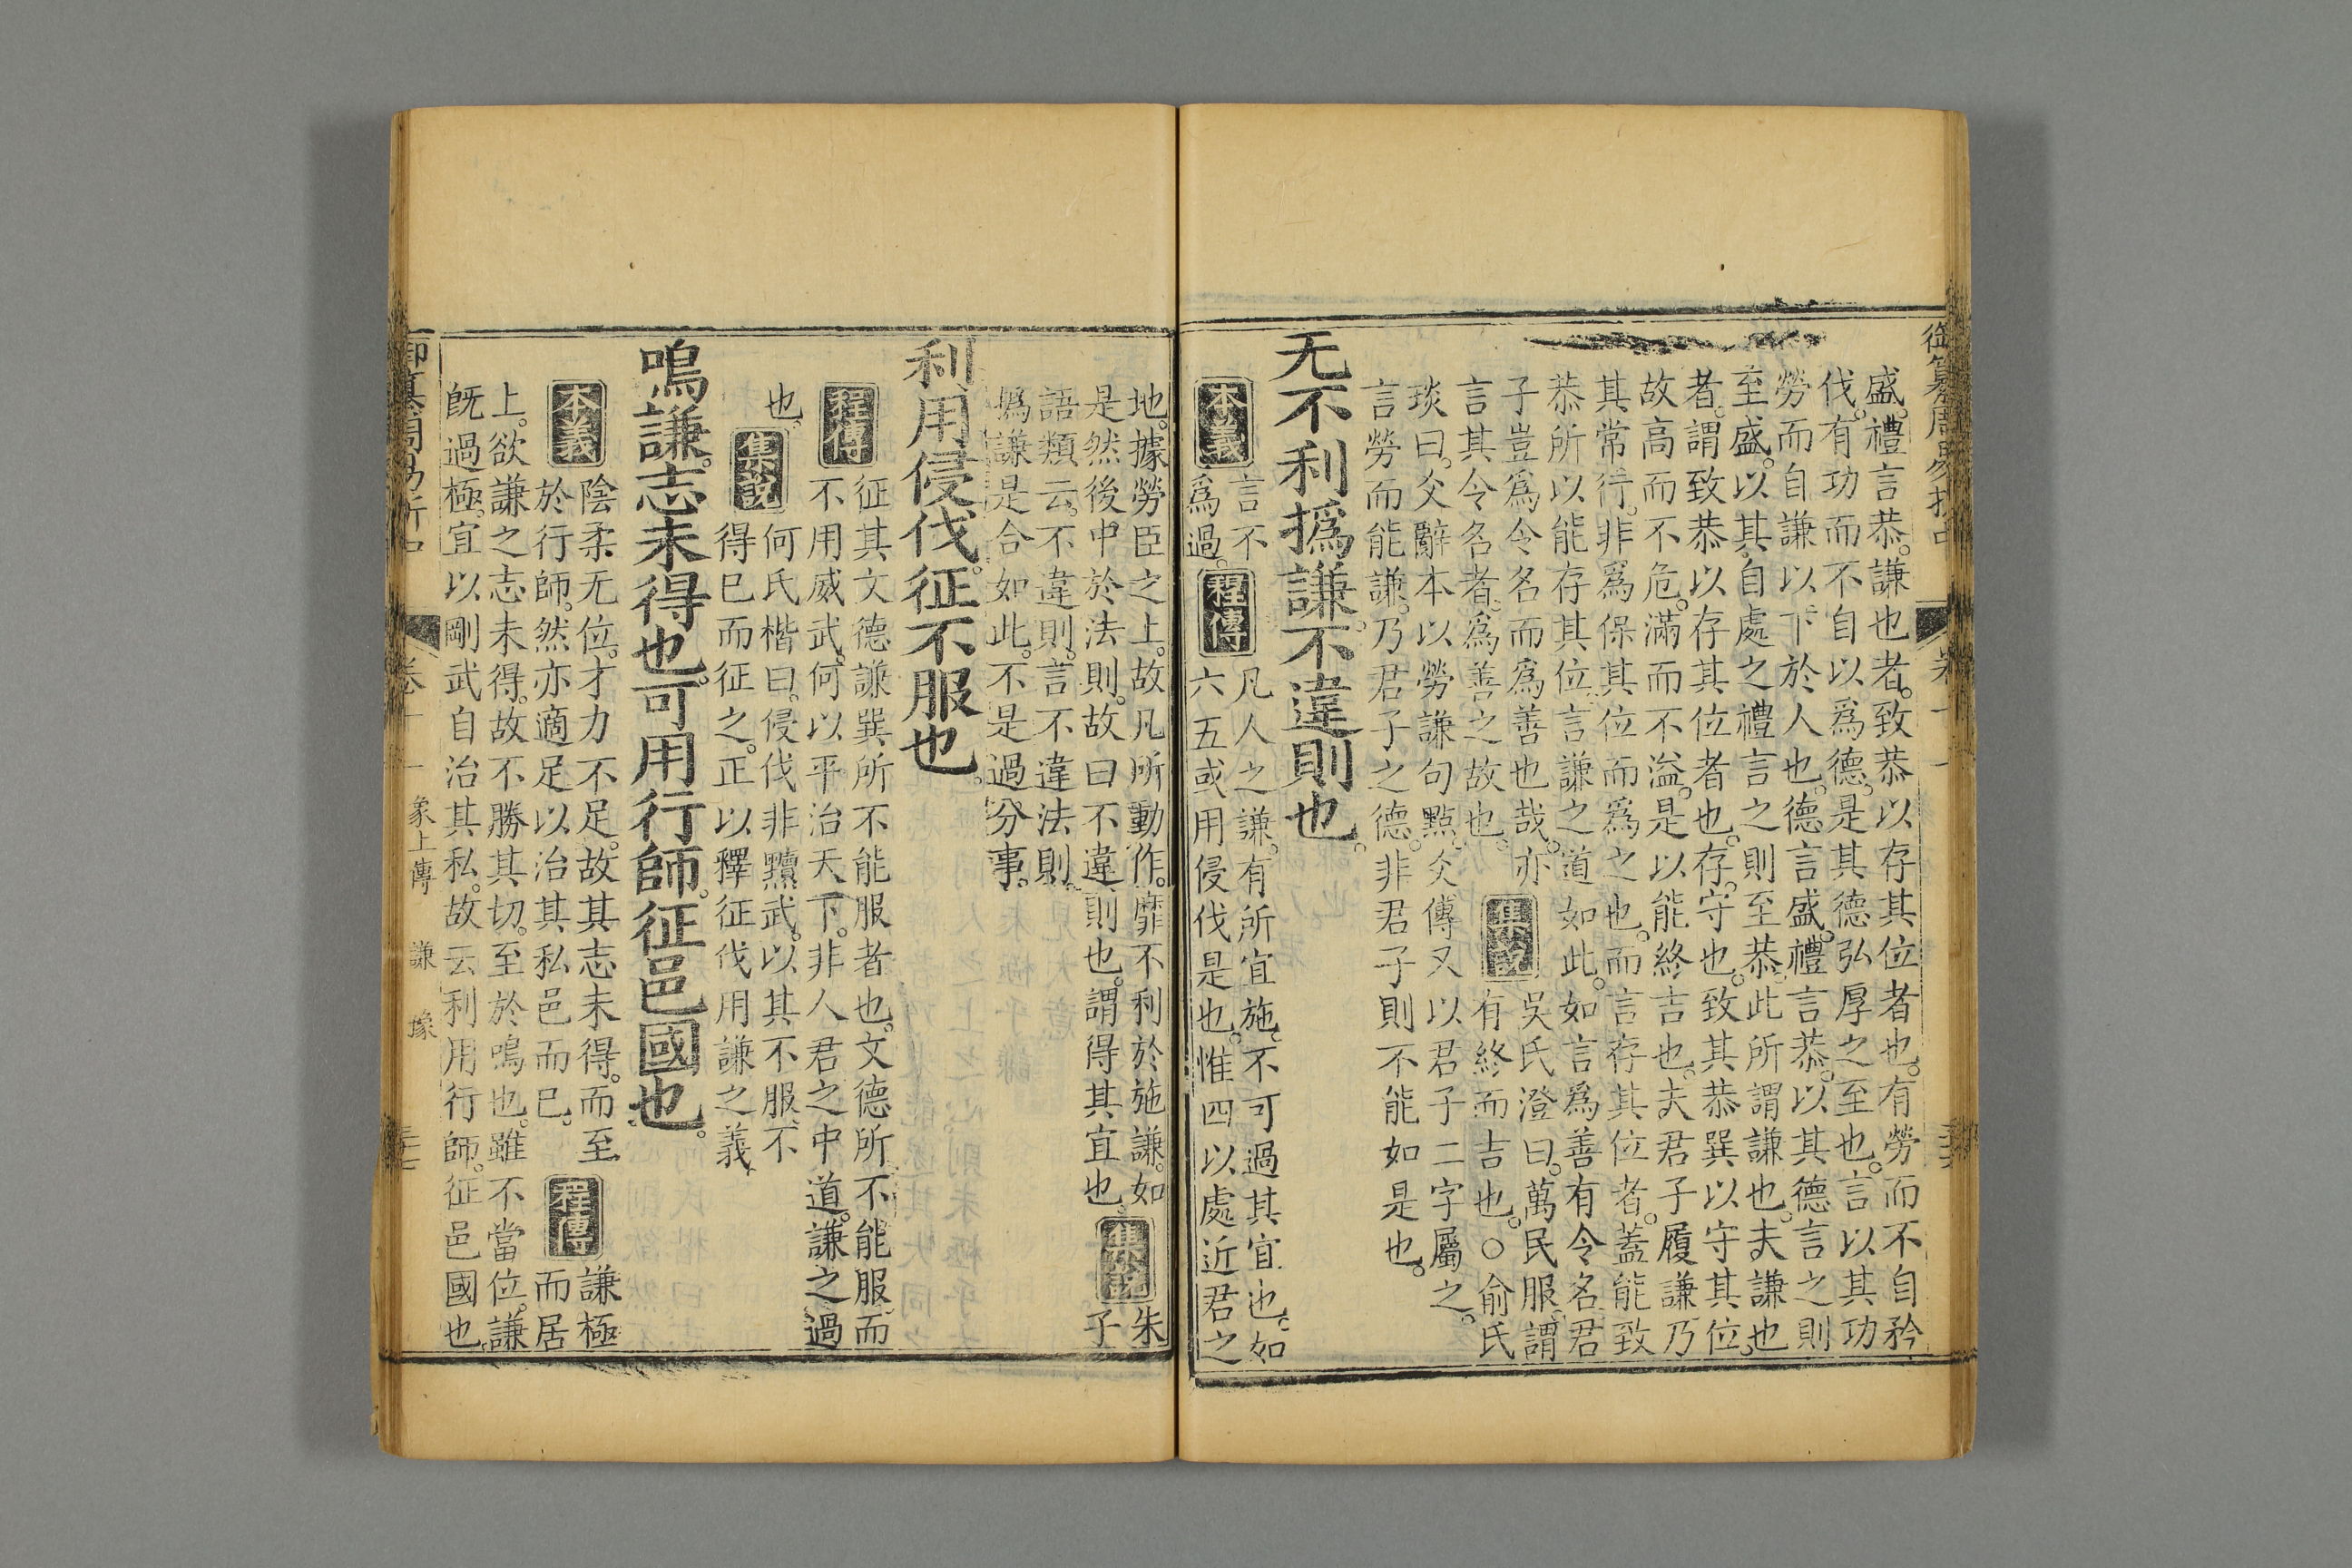 御纂周易折中
卷十一
盛。禮言恭。謙也者。致恭以存其位者也。有勞而不自矜
伐。有功而不自以爲德。是其德弘厚之至也。言以其功
勞而自謙以下於人也。德言盛。禮言恭。以其德言之則
至盛。以其自處之禮言之則至恭。此所謂謙也。夫謙也
者。謂致恭以存其位者也。存。守也。致其恭巽以守其位。
故高而不危。滿而不溢。是以能終吉也。夫君子履謙乃
其常行。非爲保其位而爲之也。而言存其位者。蓋能致
恭所以能存其位。言謙之道如此。如言爲善有令名。君
子豈爲令名而爲善也哉。亦
言其令名者。爲善之故也。
集說
吳氏澄曰。萬民服。謂
有終而吉也。○俞氏
琰曰。爻辭本以勞謙句點。爻傳又以君子二字屬之。
言勞而能謙。乃君子之德。非君子則不能如是也。
无不利撝謙。不違則也。
本義
言不
爲過。
程傳
凡人之謙。有所宜施。不可過其宜也。如
六五或用侵伐是也。惟四以處近君之
地。據勞臣之上。故凡所動作。靡不利於施謙。如
是然後中於法則。故曰不違則也。謂得其宜也。
集說
朱
子
語類云。不違則。言不違法則。
撝謙是合如此。不是過分事。
利用侵伐。征不服也。
程傳
征其文德謙巽所不能服者也。文德所不能服而
不用威武。何以平治天下。非人君之中道。謙之過
也。
集說
何氏楷曰。侵伐非黷武。以其不服。不
得已而征之。正以釋征伐用謙之義。
鳴謙。志未得也。可用行師。征邑國也。
本義
陰柔无位。才力不足。故其志未得。而至
於行師。然亦適足以治其私邑而已。
程傳
謙極
而居
上。欲謙之志未得。故不勝其切。至於鳴也。雖不當位。謙
旣過極。宜以剛武自治其私。故云利用行師。征邑國也。
御纂周易折中
卷十一
象上傳
謙
豫